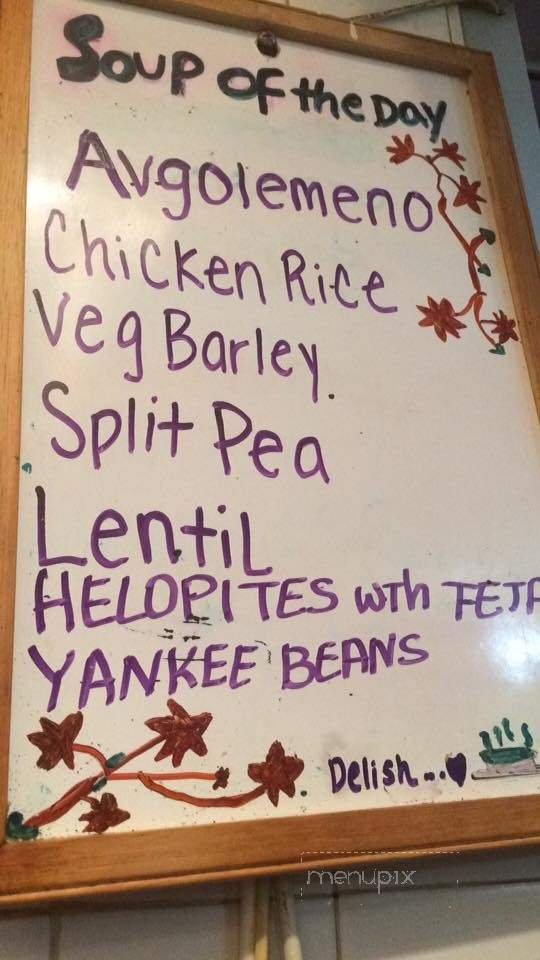 Soup of the Day
Avgolemeno
Chicken Rice
Veg Barley.
Split Pea
Lentil
HELOPITES wth FETA
YANKEE BEANS
Delish...
menupix